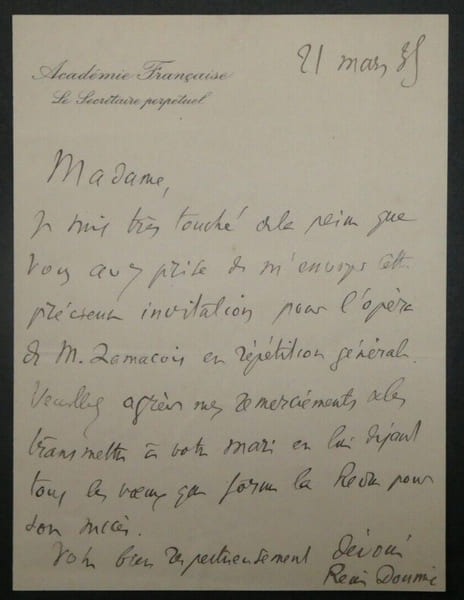 Académie Française
Le Secrétaire perpétuel
21 mars 35
Madame,
Je suis très touché de la peine que
vous avez prise de m'envoyer cette
précieuse invitation pour l'opéra
de M. Zamacoïs en répétition générale.
Veuillez agréer mes remerciements et les
transmettre à votre mari en lui disant
tous les vœux que forme la Revue pour
son succès.
Votre bien respectueusement dévoué
René Doumic